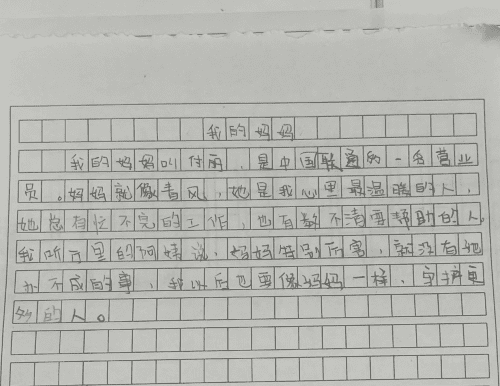 我的妈妈
我的妈妈叫付丽,是中国联通的一名营业
员。妈妈就像春风,她是我心里最温暖的人,
她总有忙不完的工作,也有数不清要帮助的人。
我听厅里的阿姨说,妈妈特别厉害,就没有她
办不成的事,我以后也要像妈妈一样,守护更
多的人。